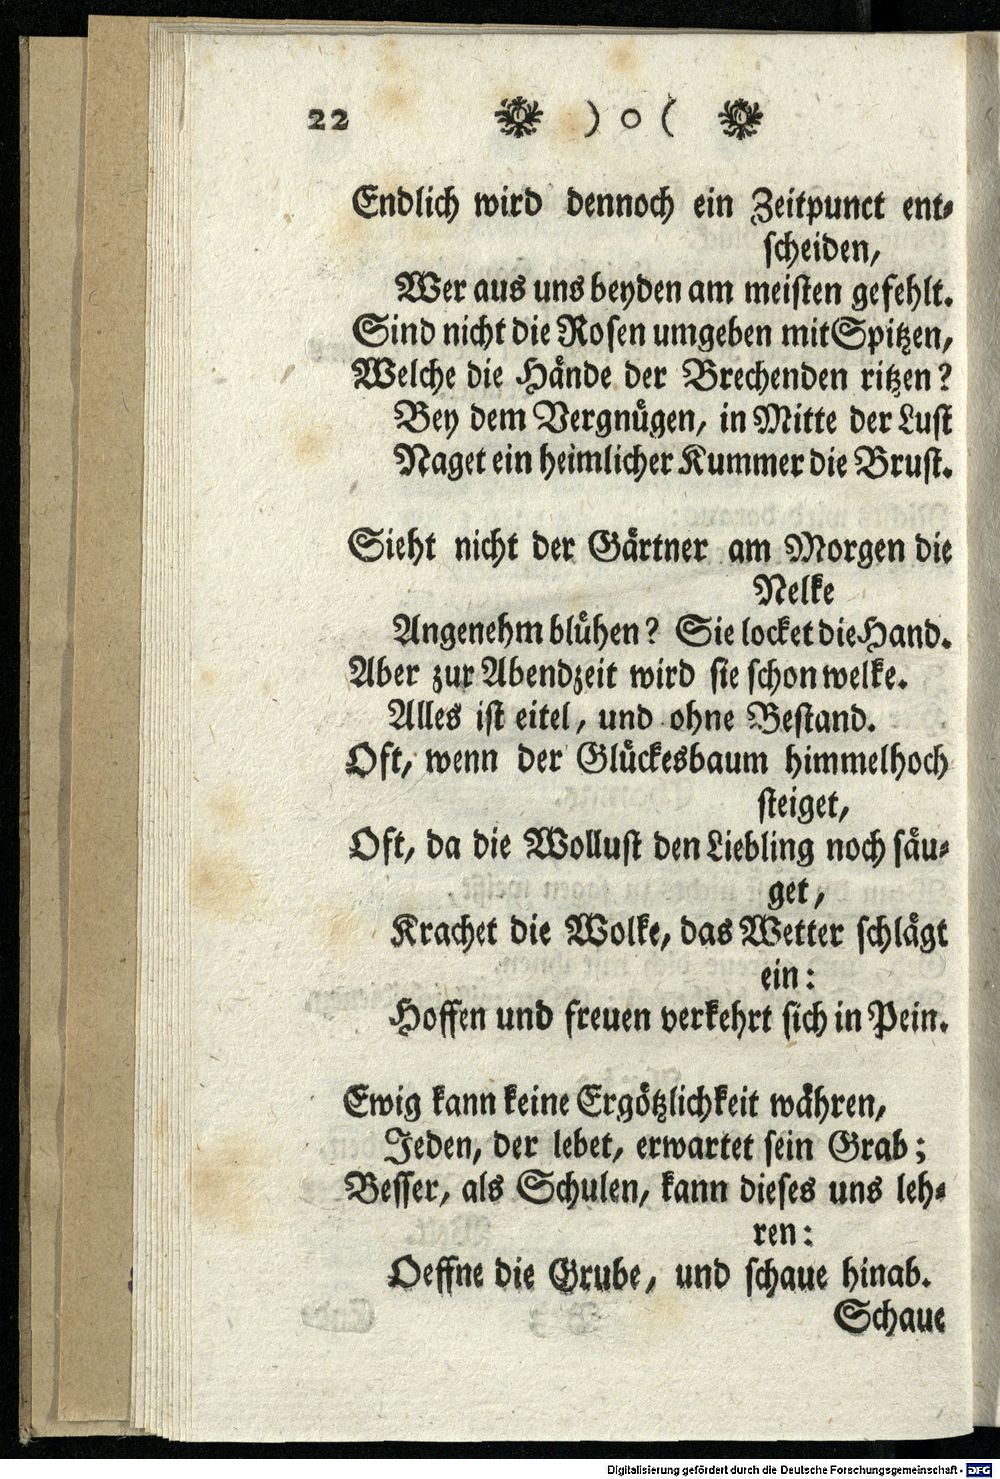 22 ) o (
Endlich wird dennoch ein Zeitpunct ent-
scheiden,
Wer aus uns beyden am meisten gefehlt.
Sind nicht die Rosen umgeben mit Spitzen,
Welche die Hände der Brechenden ritzen?
Bey dem Vergnügen, in Mitte der Lust
Naget ein heimlicher Kummer die Brust.
Sieht nicht der Gärtner am Morgen die
Nelke
Angenehm blühen? Sie locket die Hand.
Aber zur Abendzeit wird sie schon welke.
Alles ist eitel, und ohne Bestand.
Oft, wenn der Glückesbaum himmelhoch
steiget,
Oft, da die Wollust den Liebling noch säu-
get,
Krachet die Wolke, das Wetter schlägt
ein:
Hoffen und freuen verkehrt sich in Pein.
Ewig kann keine Ergötzlichkeit währen,
Jeden, der lebet, erwartet sein Grab;
Besser, als Schulen, kann dieses uns leh-
ren:
Oeffne die Grube, und schaue hinab.
Schaue
Digitalisierung gefördert durch die Deutsche Forschungsgemeinschaft - DFG